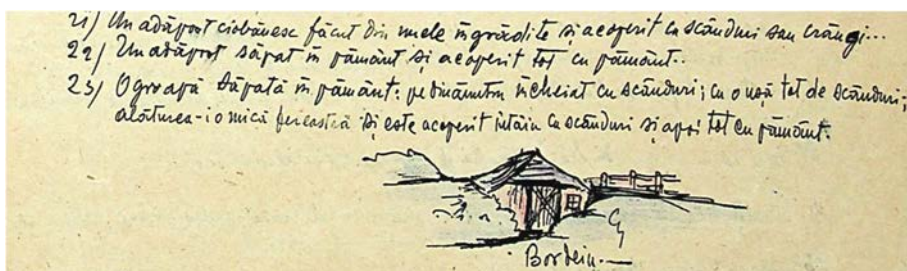 21) Un adăpost ciobănesc făcut din nuele îngrădite și acoperit cu scânduri sau crângi...
22) Un adăpost săpat în pământ și acoperit tot cu pământ..
23) O groapă săpată în pământ: pe dinăuntru încheiat cu scânduri; cu o ușă tot de scânduri;
alăturea-i o mică fereastră și este acoperit întâiu cu scânduri și apoi tot cu pământ.
Bordeiu.—